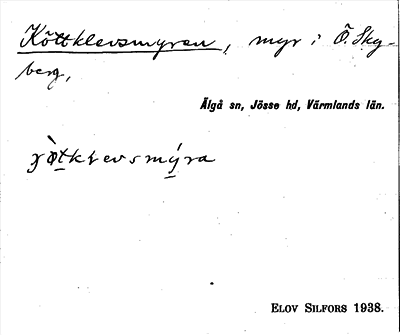 Köttklevsmyren, myr i Ö. Sky-
berg,
Älgå sn, Jösse hd, Värmlands län.
ELOV SILFORS 1938.